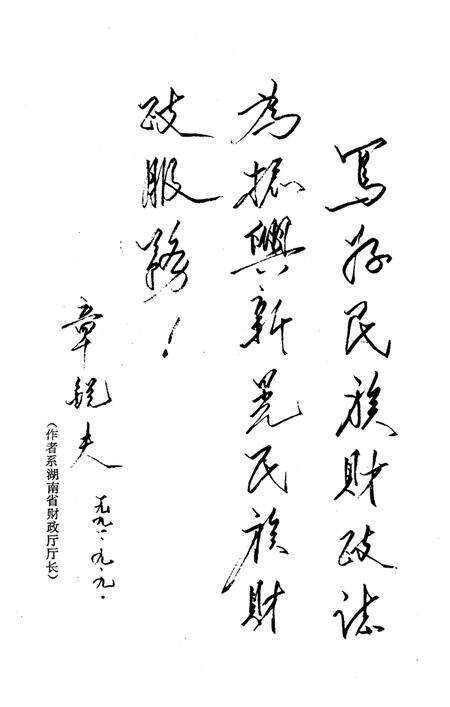 寫好民族財政誌
為振興新晃民族財
政服務！
章銳夫
一九九一·九·九·
（作者系湖南省财政厅厅长）